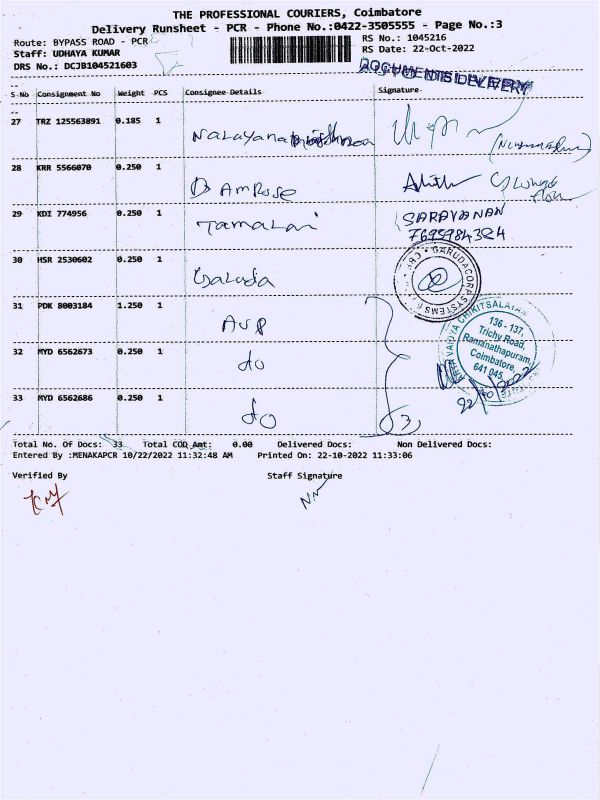 THE PROFESSIONAL COURIERS, Coimbatore
Delivery Runsheet - PCR - Phone No.:0422-3505555 - Page No.:3
Route: BYPASS ROAD - PCR
RS No.: 1045216
Staff: UDHAYA KUMAR
RS Date: 22-Oct-2022
DRS No.: DCJB104521603
DOCUMENTS DELIVERY
S No Consignment No Weight PCS Consignee Details Signature
27 TRZ 125563891 0.185 1 Narayana
28 KRR 5566070 0.250 1 Dr Ambrose
29 KDI 774956 0.250 1 Tamalai SARAVANAN
7695984324
30 HSR 2530602 0.250 1
GARUDACORP SYSTEMS
31 PDK 8003184 1.250 1 AVP
CHIKITSALAYAM
136 - 137,
Trichy Road,
Ramanathapuram,
Coimbatore,
641 045.
22/10/2022
32 MYD 6562673 0.250 1 do
33 MYD 6562686 0.250 1 do (3)
Total No. Of Docs: 33 Total COD Amt: 0.00 Delivered Docs: Non Delivered Docs:
Entered By :MENAKAPCR 10/22/2022 11:32:48 AM Printed On: 22-10-2022 11:33:06
Verified By Staff Signature